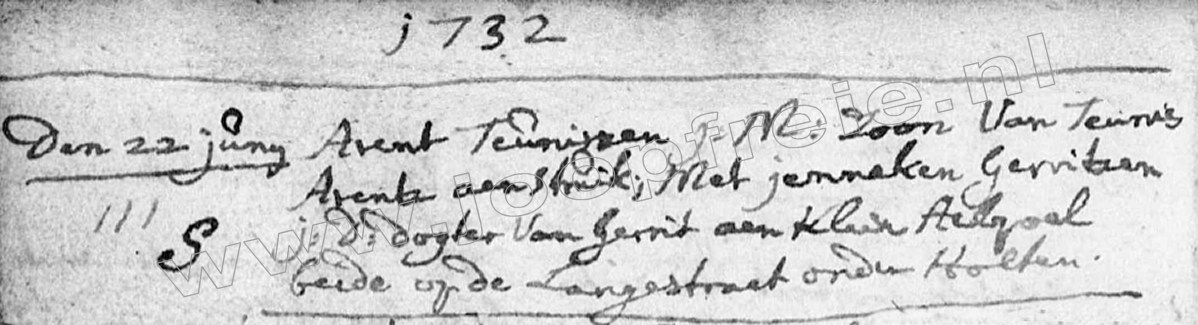 j732
Den 22 juny Arent Teunissen j: M: Zoon Van Teunis
Arentz aen Struik; Met jenneken Gerritzen
111
S j: d: dogter Van Gerrit aen Klein
beide op de Langestraet onder Holten.
www.loopfreie.nl